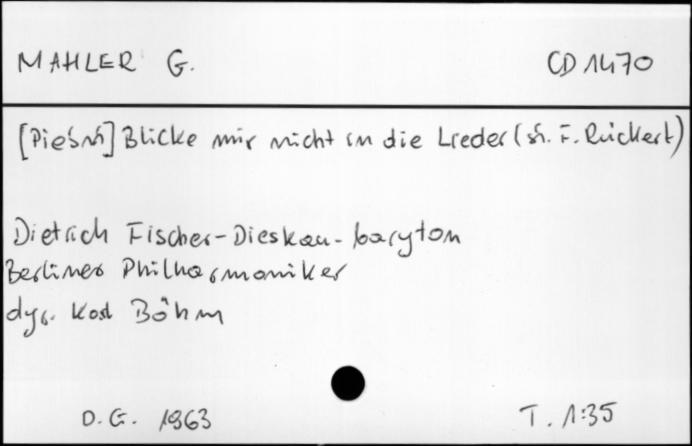 MAHLER G. CD 1470
[Pieśń] Blicke mir nicht in die Lieder (sł. F. Rückert)
Dietrich Fischer-Dieskau - baryton
Berliner Philharmoniker
dyr. Karl Böhm
D.G. 1963 T. 1:35